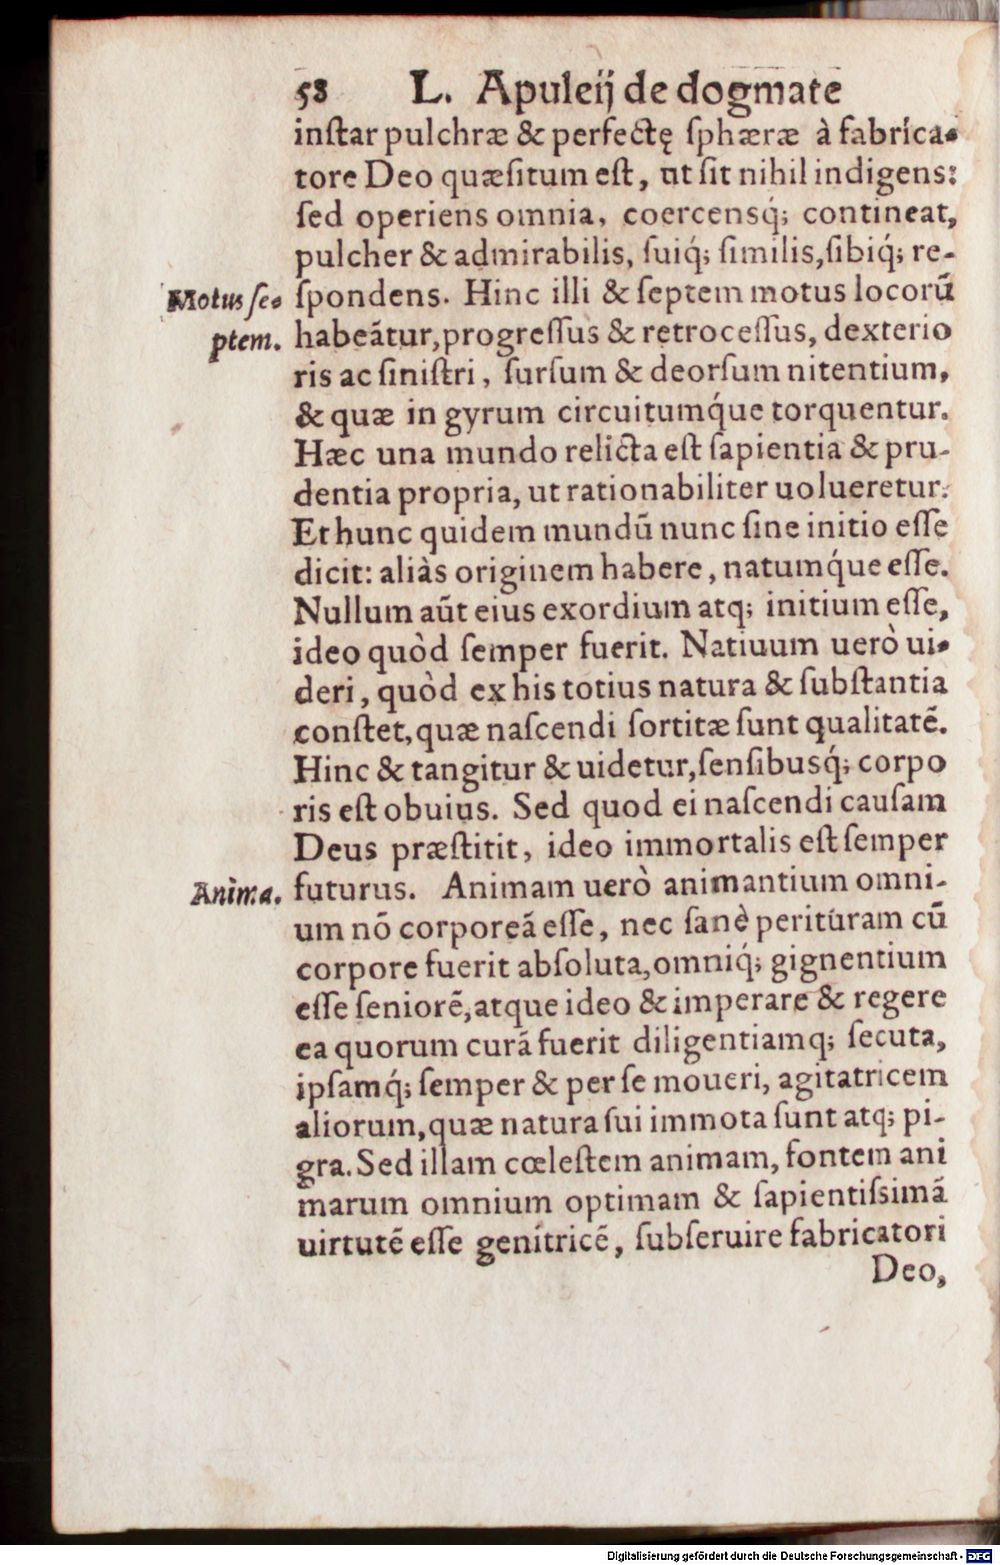 58 L. Apuleij de dogmate
inſtar pulchræ & perfectę ſphæræ à fabrica-
tore Deo quæſitum eſt, ut ſit nihil indigens:
ſed operiens omnia, coercensq́; contineat,
pulcher & admirabilis, ſuiq́; ſimilis, ſibiq́; re-
Motus ſe- ſpondens. Hinc illi & ſeptem motus locorũ
ptem. habeãtur, progreſſus & retroceſſus, dexterio
ris ac ſiniſtri, ſurſum & deorſum nitentium,
& quæ in gyrum circuitumq́ue torquentur.
Hæc una mundo relicta eſt ſapientia & pru-
dentia propria, ut rationabiliter uolueretur.
Et hunc quidem mundũ nunc ſine initio eſſe
dicit: aliàs originem habere, natumq́ue eſſe.
Nullum aũt eius exordium atq; initium eſſe,
ideo quòd ſemper fuerit. Natiuum uerò ui-
deri, quòd ex his totius natura & ſubſtantia
conſtet, quæ naſcendi ſortitæ ſunt qualitatẽ.
Hinc & tangitur & uidetur, ſenſibusq́; corpo
ris eſt obuius. Sed quod ei naſcendi cauſam
Deus præſtitit, ideo immortalis eſt ſemper
Anima. futurus. Animam uerò animantium omni-
um nõ corporeã eſſe, nec ſanè perituram cũ
corpore fuerit abſoluta, omniq́; gignentium
eſſe ſeniorẽ, atque ideo & imperare & regere
ea quorum curã fuerit diligentiamq; ſecuta,
ipſamq́; ſemper & per ſe moueri, agitatricem
aliorum, quæ natura ſui immota ſunt atq; pi-
gra. Sed illam cœleſtem animam, fontem ani
marum omnium optimam & ſapientiſsimã
uirtutẽ eſſe genitricẽ, ſubſeruire fabricatori
Deo,
Digitalisierung gefördert durch die Deutsche Forschungsgemeinschaft - DFG